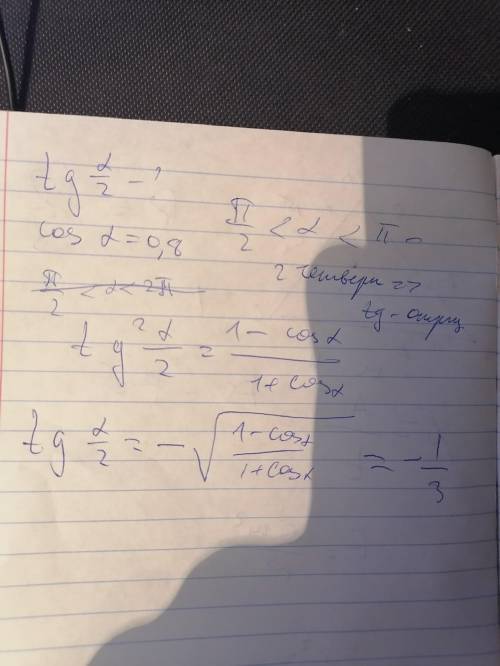 tg α/2 - ?
cos α = 0,8
π/2 < α < π -
2 четверти =>
tg - отриц
π/2 < α < 2π
tg² α/2 = 1 - cosα / 1 + cosα
tg α/2 = - √(1 - cosα / 1 + cosα) = - 1/3